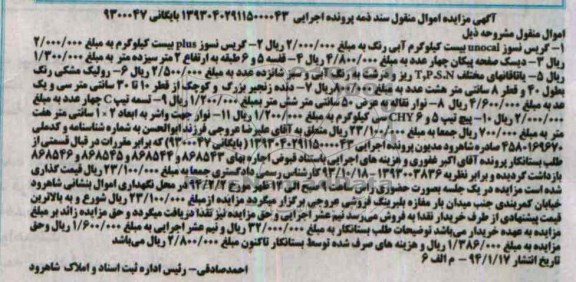 آگهی مزایده اموال منقول سند ذمه پرونده اجرایی ۱۳۹۳۰۴۰۲۹۱۱۵۰۰۰۰۴۳ بایگانی ۹۳۰۰۰۴۷
اموال منقول مشروحه ذیل
۱- گریس نسوز unocal بیست کیلوگرم آبی رنگ به مبلغ ۲/۰۰۰/۰۰۰ ریال ۲- گریس نسوز plus بیست کیلوگرم به مبلغ ۲/۰۰۰/۰۰۰
ریال ۳- دیسک صفحه پیکان چهار عدد به مبلغ ۴/۸۰۰/۰۰۰ ریال ۴- قفسه ۵ و ۶ طبقه به ارتفاع ۲ متر سیزده متر به مبلغ ۱/۳۰۰/۰۰۰
ریال ۵- یاتاقانهای مختلف T,P.S.N ریز و درشت به رنگ آبی و سبز شانزده عدد به مبلغ ۲/۵۰۰/۰۰۰ ریال ۶- رولیک مشکی رنگ
بطول ۴۰ و قطر ۸ سانتی متر هشت عدد به مبلغ ریال ۷- دنده زنجیر بزرگ و کوچک از قطر ۱۰ تا ۳۰ سانتی متر سی و یک
عدد به مبلغ ۴/۶۰۰/۰۰۰ ریال ۸- نوار نقاله به عرض ۵۰ سانتی متر شش متر بمبلغ ۱/۲۰۰/۰۰۰ ریال ۹- تسمه تیپ C چهار عدد به مبلغ
۲/۰۰۰/۰۰۰ ریال ۱۰- پیچ تیپ ۵ و ۶ CHY سی کیلوگرم به مبلغ ۱/۲۰۰/۰۰۰ ریال ۱۱- نوار جهت واشر به ابعاد ۲×۱ سانتی متر هفت
متر به مبلغ ۷۰۰/۰۰۰ ریال جمعا به مبلغ ۲۳/۱۰۰/۰۰۰ ریال متعلق به آقای علیرضا عروجی فرزند ابوالحسن به شماره شناسنامه و کدملی
۴۵۸۰۱۶۹۶۷۰ صادره شاهرود مدیون پرونده اجرایی ۱۳۹۳۰۴۰۲۹۱۱۵۰۰۰۰۴۳ ( بایگانی ۹۳۰۰۰۴۷) که برابر مقررات در قبال قسمتی از
طلب بستانکار پرونده آقای اکبر غفوری و هزینه های اجرایی باستناد قبوض اجاره بهای ۸۶۸۵۴۳ و ۸۶۸۵۴۴ و ۸۶۸۵۴۵ و ۸۶۸۵۴۶
بازداشت گردیده و برابر نظریه ۱۳۹۳۰۰۳۸۳۶ - ۹۳/۰۱/۱۸ کارشناس رسمی دادگستری جمعا به مبلغ ۲۳/۱۰۰/۰۰۰ ریال قیمت گذاری
شده است مزایده در یک جلسه بصورت حضوری از ساعت ۹ صبح الی ۱۲ ظهر مورخ ۹۴/۲/۲ در محل نگهداری اموال بنشانی شاهرود
خیابان کمربندی جنب میدان بار مغازه بلبرینگ فروشی عروجی برگزار میگردد مزایده از مبلغ ۲۳/۱۰۰/۰۰۰ ریال شورع و به بالاترین
قیمت پیشنهادی از طرف خریدار نقدا به فروش میرسد نیم عشر اجرایی و حق مزایده نیز نقدا دریافت میگردد و حق مزایده زائد بر مبلغ
مزایده به عهده خریدار می‌باشد توضیحات طلب بستانکار به مبلغ ۳۲/۰۰۰/۰۰۰ ریال و نیم عشر اجرایی به مبلغ ۱/۶۰۰/۰۰۰ ریال وحق
مزایده به مبلغ ۱/۳۸۶/۰۰۰ ریال و هزینه های صرف شده توسط بستانکار تاکنون مبلغ ۲/۸۰۰/۰۰۰ ریال می‌باشد
تاریخ انتشار ۹۴/۱/۱۷ - م الف ۶
احمدصادقی- رئیس اداره ثبت اسناد و املاک شاهرود